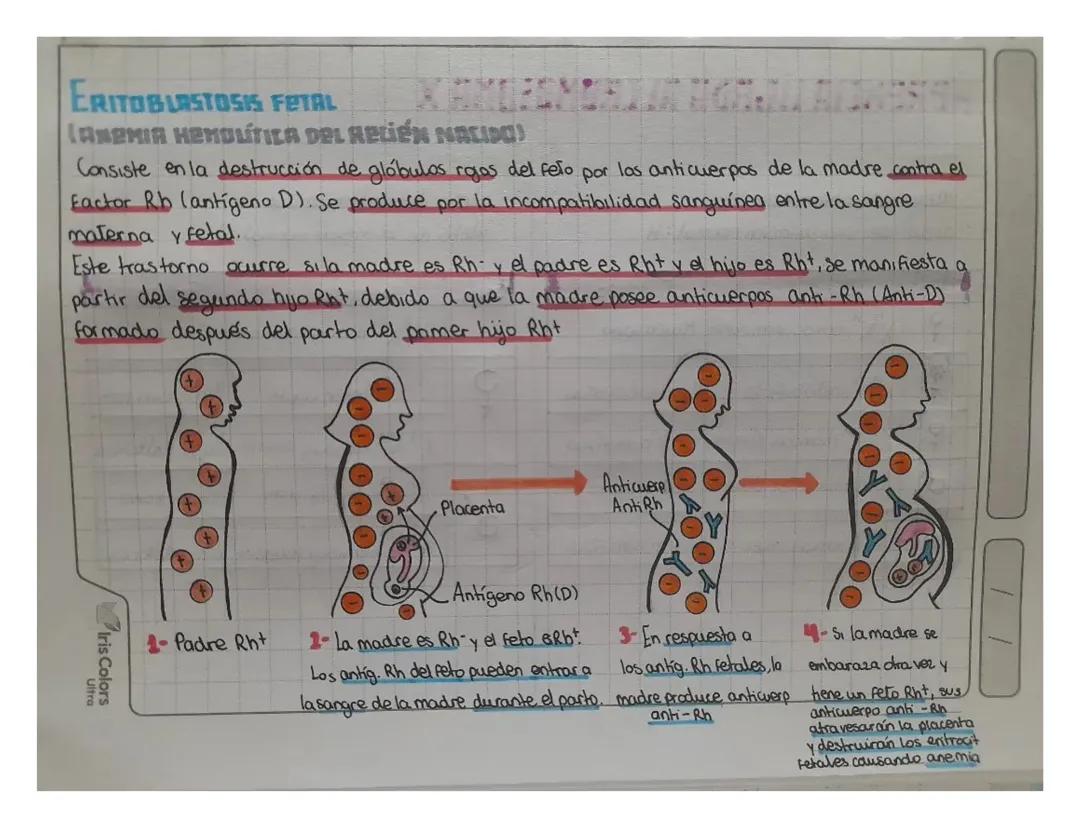 ERITOBLASTOSIS FETAL
(ANEMIA HEMOLÍTICA DEL RECIÉN NACIDO)
Consiste en la destrucción de glóbulos rojos del feto por los anticuerpos de la madre contra el
Factor Rh (antígeno D). Se produce por la incompatibilidad sanguínea entre la sangre
materna y fetal.
Este trastorno ocurre si la madre es Rh- y el padre es Rh+ y el hijo es Rh+, se manifiesta a
partir del segundo hijo Rh+, debido a que la madre posee anticuerpos anti-Rh (Anti-D)
formado después del parto del primer hijo Rh+
Placenta
Antígeno Rh(D)
Anticuerp
AntiRh
1- Padre Rh+
2- La madre es Rh- y el feto es Rh+.
Los antíg. Rh del feto pueden entrar a
la sangre de la madre durante el parto.
3- En respuesta a
los antíg. Rh fetales, la
madre produce anticuerp
anti-Rh
4- Si la madre se
embaraza otra vez y
tiene un feto Rh+, sus
anticuerpo anti-Rh
atravesarán la placenta
y destruirán los eritrocit
fetales causando anemia
Iris Colors
Ultra